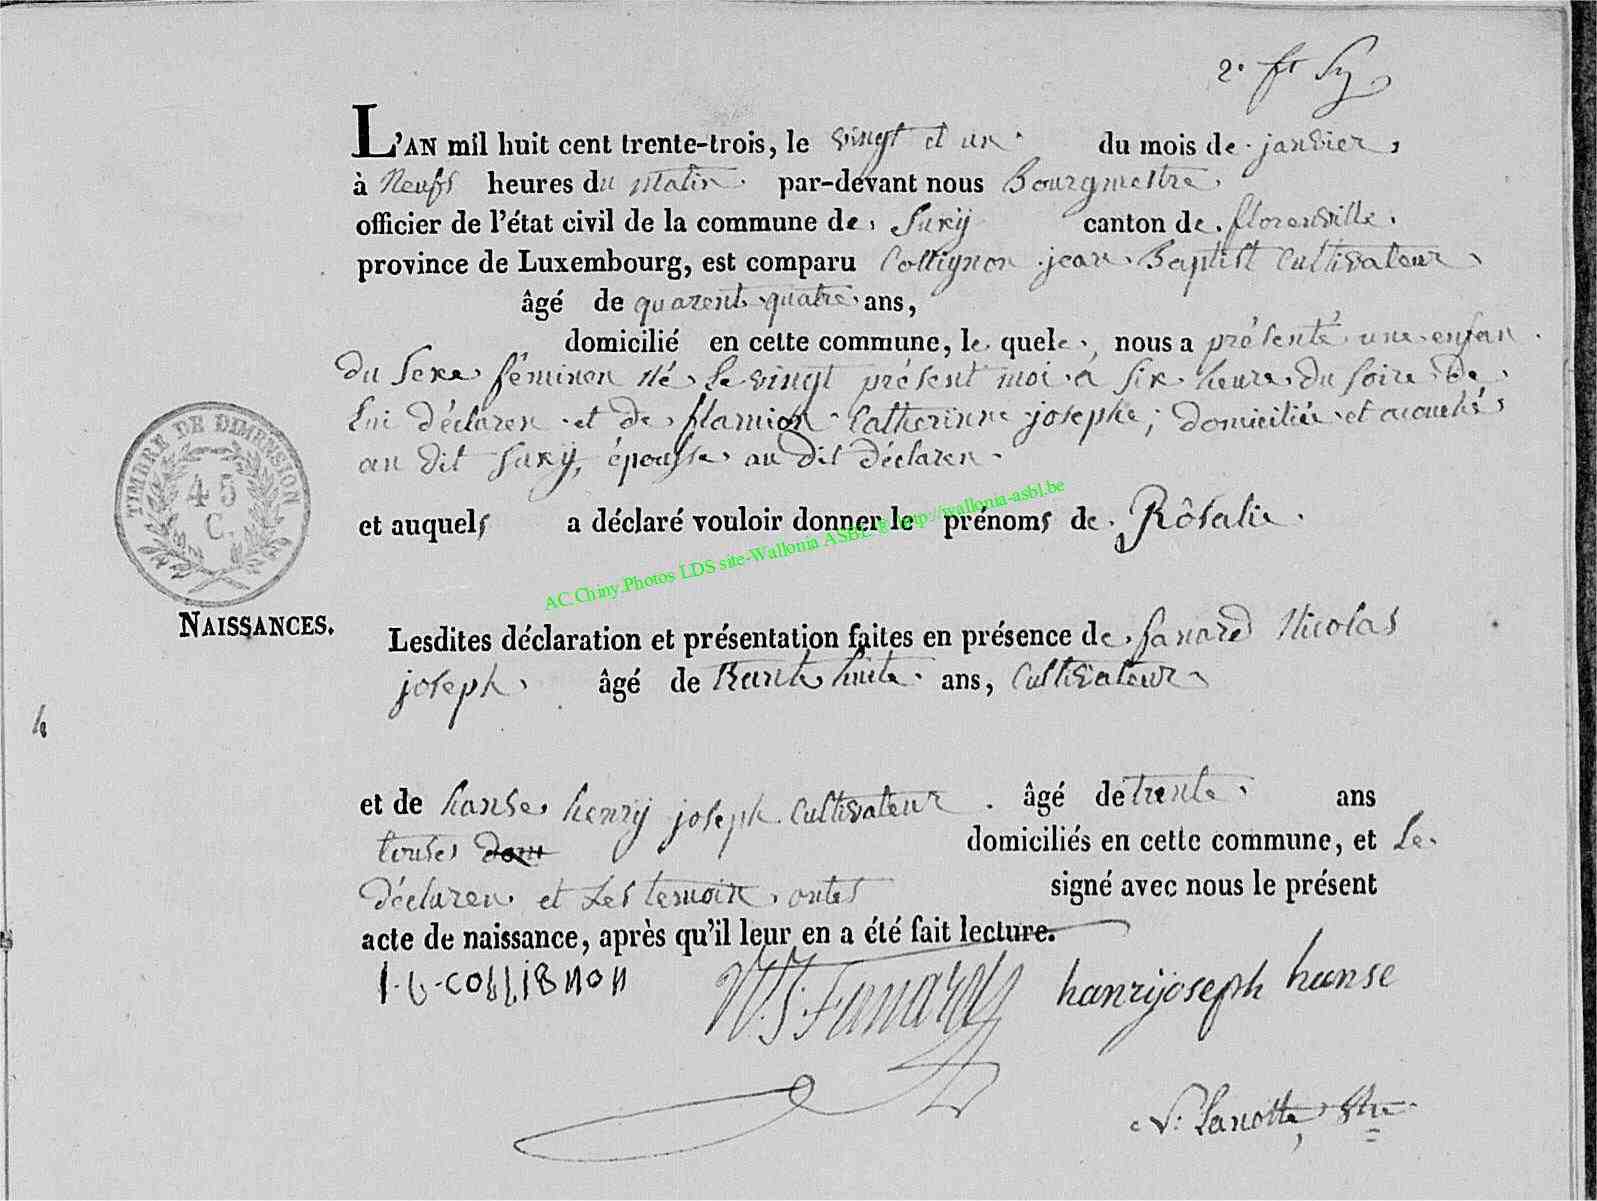 2.
L'AN mil huit cent trente-trois, le vingt et un du mois de janvier,
à Neufs heures du Matin par-devant nous Bourgmestre
officier de l'état civil de la commune de Suxÿ canton de florenville
province de Luxembourg, est comparu Collignon jean Baptist Cultivateur
âgé de quarent quatre ans,
domicilié en cette commune, le quele, nous a présenté une enfan
du Sexe féminen né le vingt présent moi a six heure du soire de
lui déclaren et de flamion Catherinne josephe; domiciliée et acouchés
au dit Suxy, épousse au dit déclaren
et auquels a déclaré vouloir donner le prénoms de Rôsalie
TIMBRE DE DIMENSION
45
C.
AC.Chiny.Photos LDS site-Wallonia ASBL @ http://wallonia-asbl.be
NAISSANCES.
Lesdites déclaration et présentation faites en présence de fanard Nicolas
joseph âgé de trente huite ans, Cultivateur
4
et de hanse henrÿ joseph Cultivateur âgé de trente ans
toutes dom domiciliés en cette commune, et Le
déclaren et Les temoin ontes signé avec nous le présent
acte de naissance, après qu'il leur en a été fait lecture.
I-b-COLLIGNON N.J. Fanard hanrijoseph hanse
Lanotte